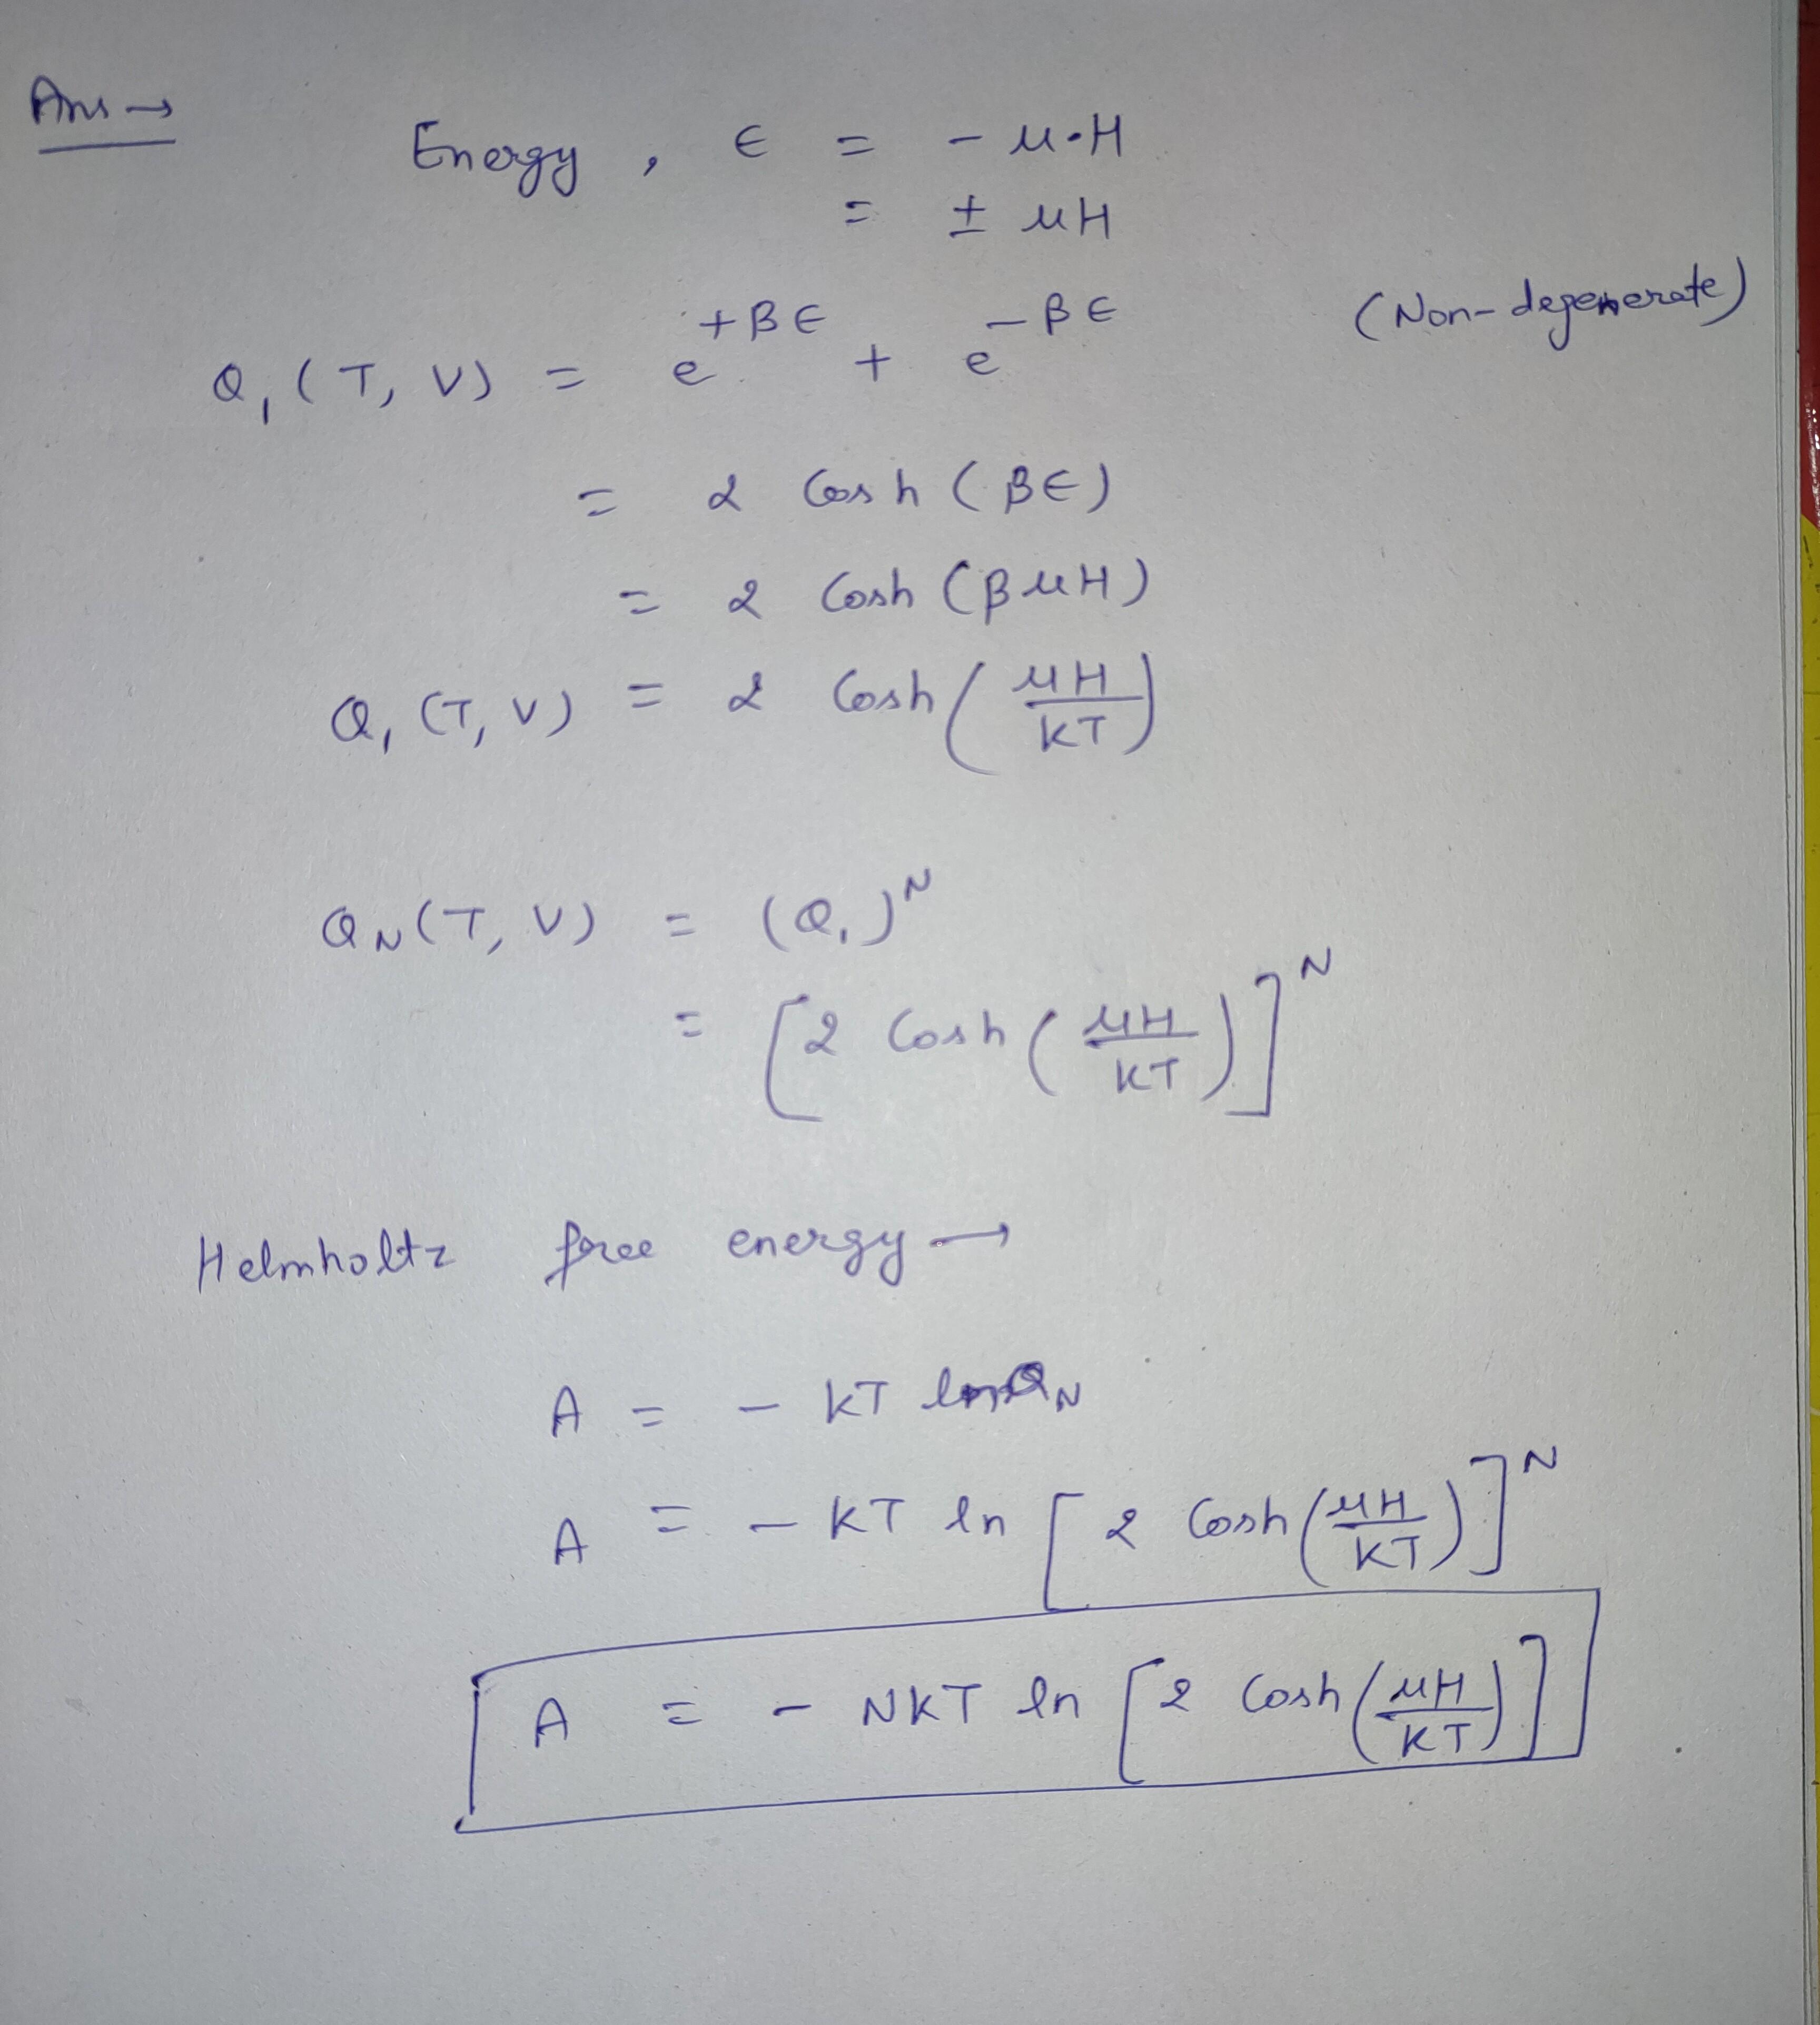 Ans →
Energy, ∈ = - μ·H
= ± μH
Q₁ (T, V) = e^{+β∈} + e^{-β∈} (Non-degenerate)
= 2 Cosh (β∈)
= 2 Cosh (βμH)
Q₁ (T, V) = 2 Cosh (μH/KT)
Q_N (T, V) = (Q₁)^N
= [2 Cosh (μH/KT)]^N
Helmholtz free energy →
A = - KT ln Q_N
A = - KT ln [2 Cosh (μH/KT)]^N
A = - NKT ln [2 Cosh (μH/KT)]